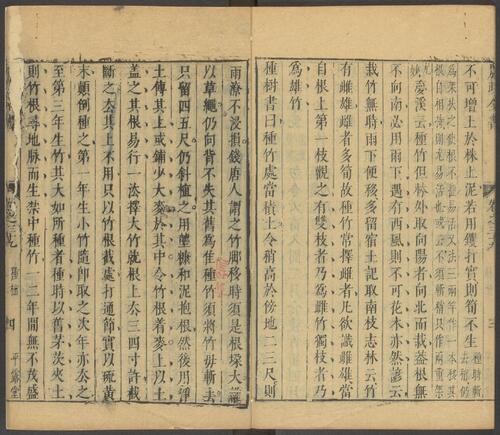 不可增上於株上泥若用钁打實則筍不生種時斬去梢仍
為架扶之使根不搖易活又法三兩竿作一本移其
根自相持則尤易活也或云不須斬梢只作兩重架
尤妙夢溪云種竹但林外取向陽者向北而栽蓋根無
不向南必用雨下遇有西風則不可花木亦然諺云
栽竹無時雨下便移多留宿土記取南枝志林云竹
有雌雄雌者多筍故種竹常擇雌者凡欲識雌雄當
自根上第一枝觀之有雙枝者乃為雌竹獨枝者乃
為雄竹
種树書曰種竹處當積土令稍高於傍地二三尺則
雨潦不浸損錢唐人謂之竹脚移時須是根垜大
以草繩仍向背不失其舊為佳種竹須將竹母斬去
只留四五尺仍斜植之用糠和泥抱根然後用淨
土傅其上或鋪少大麥於其中令竹根着麥上以土
盖之其根易行一法擇大竹就根上去三四寸許截
斷之去其上不用只以竹根截處打通節實以硫黄
末顛倒種之第一年生小竹隨卽取之次年亦去之
至第三年生竹其大如所種者移時以舊茅茨夾土
則竹根尋地脈而生禁中種竹一二年間無不茂盛
種植 四 平露堂